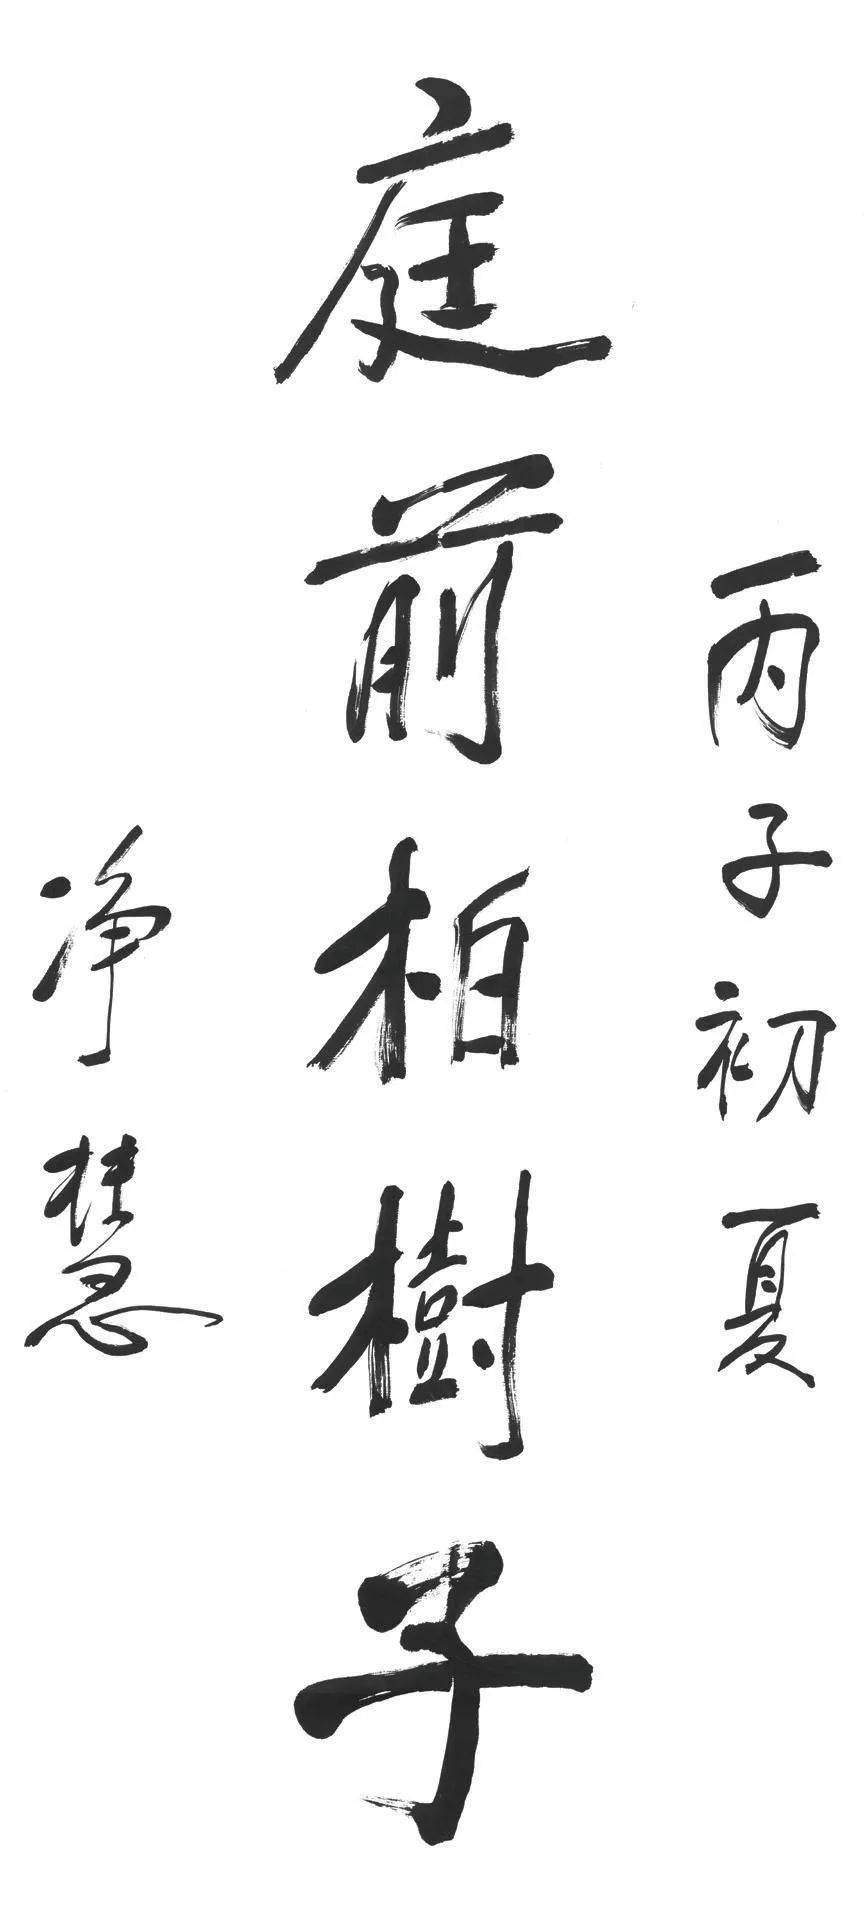 丙子初夏
庭前柏樹子
净慧